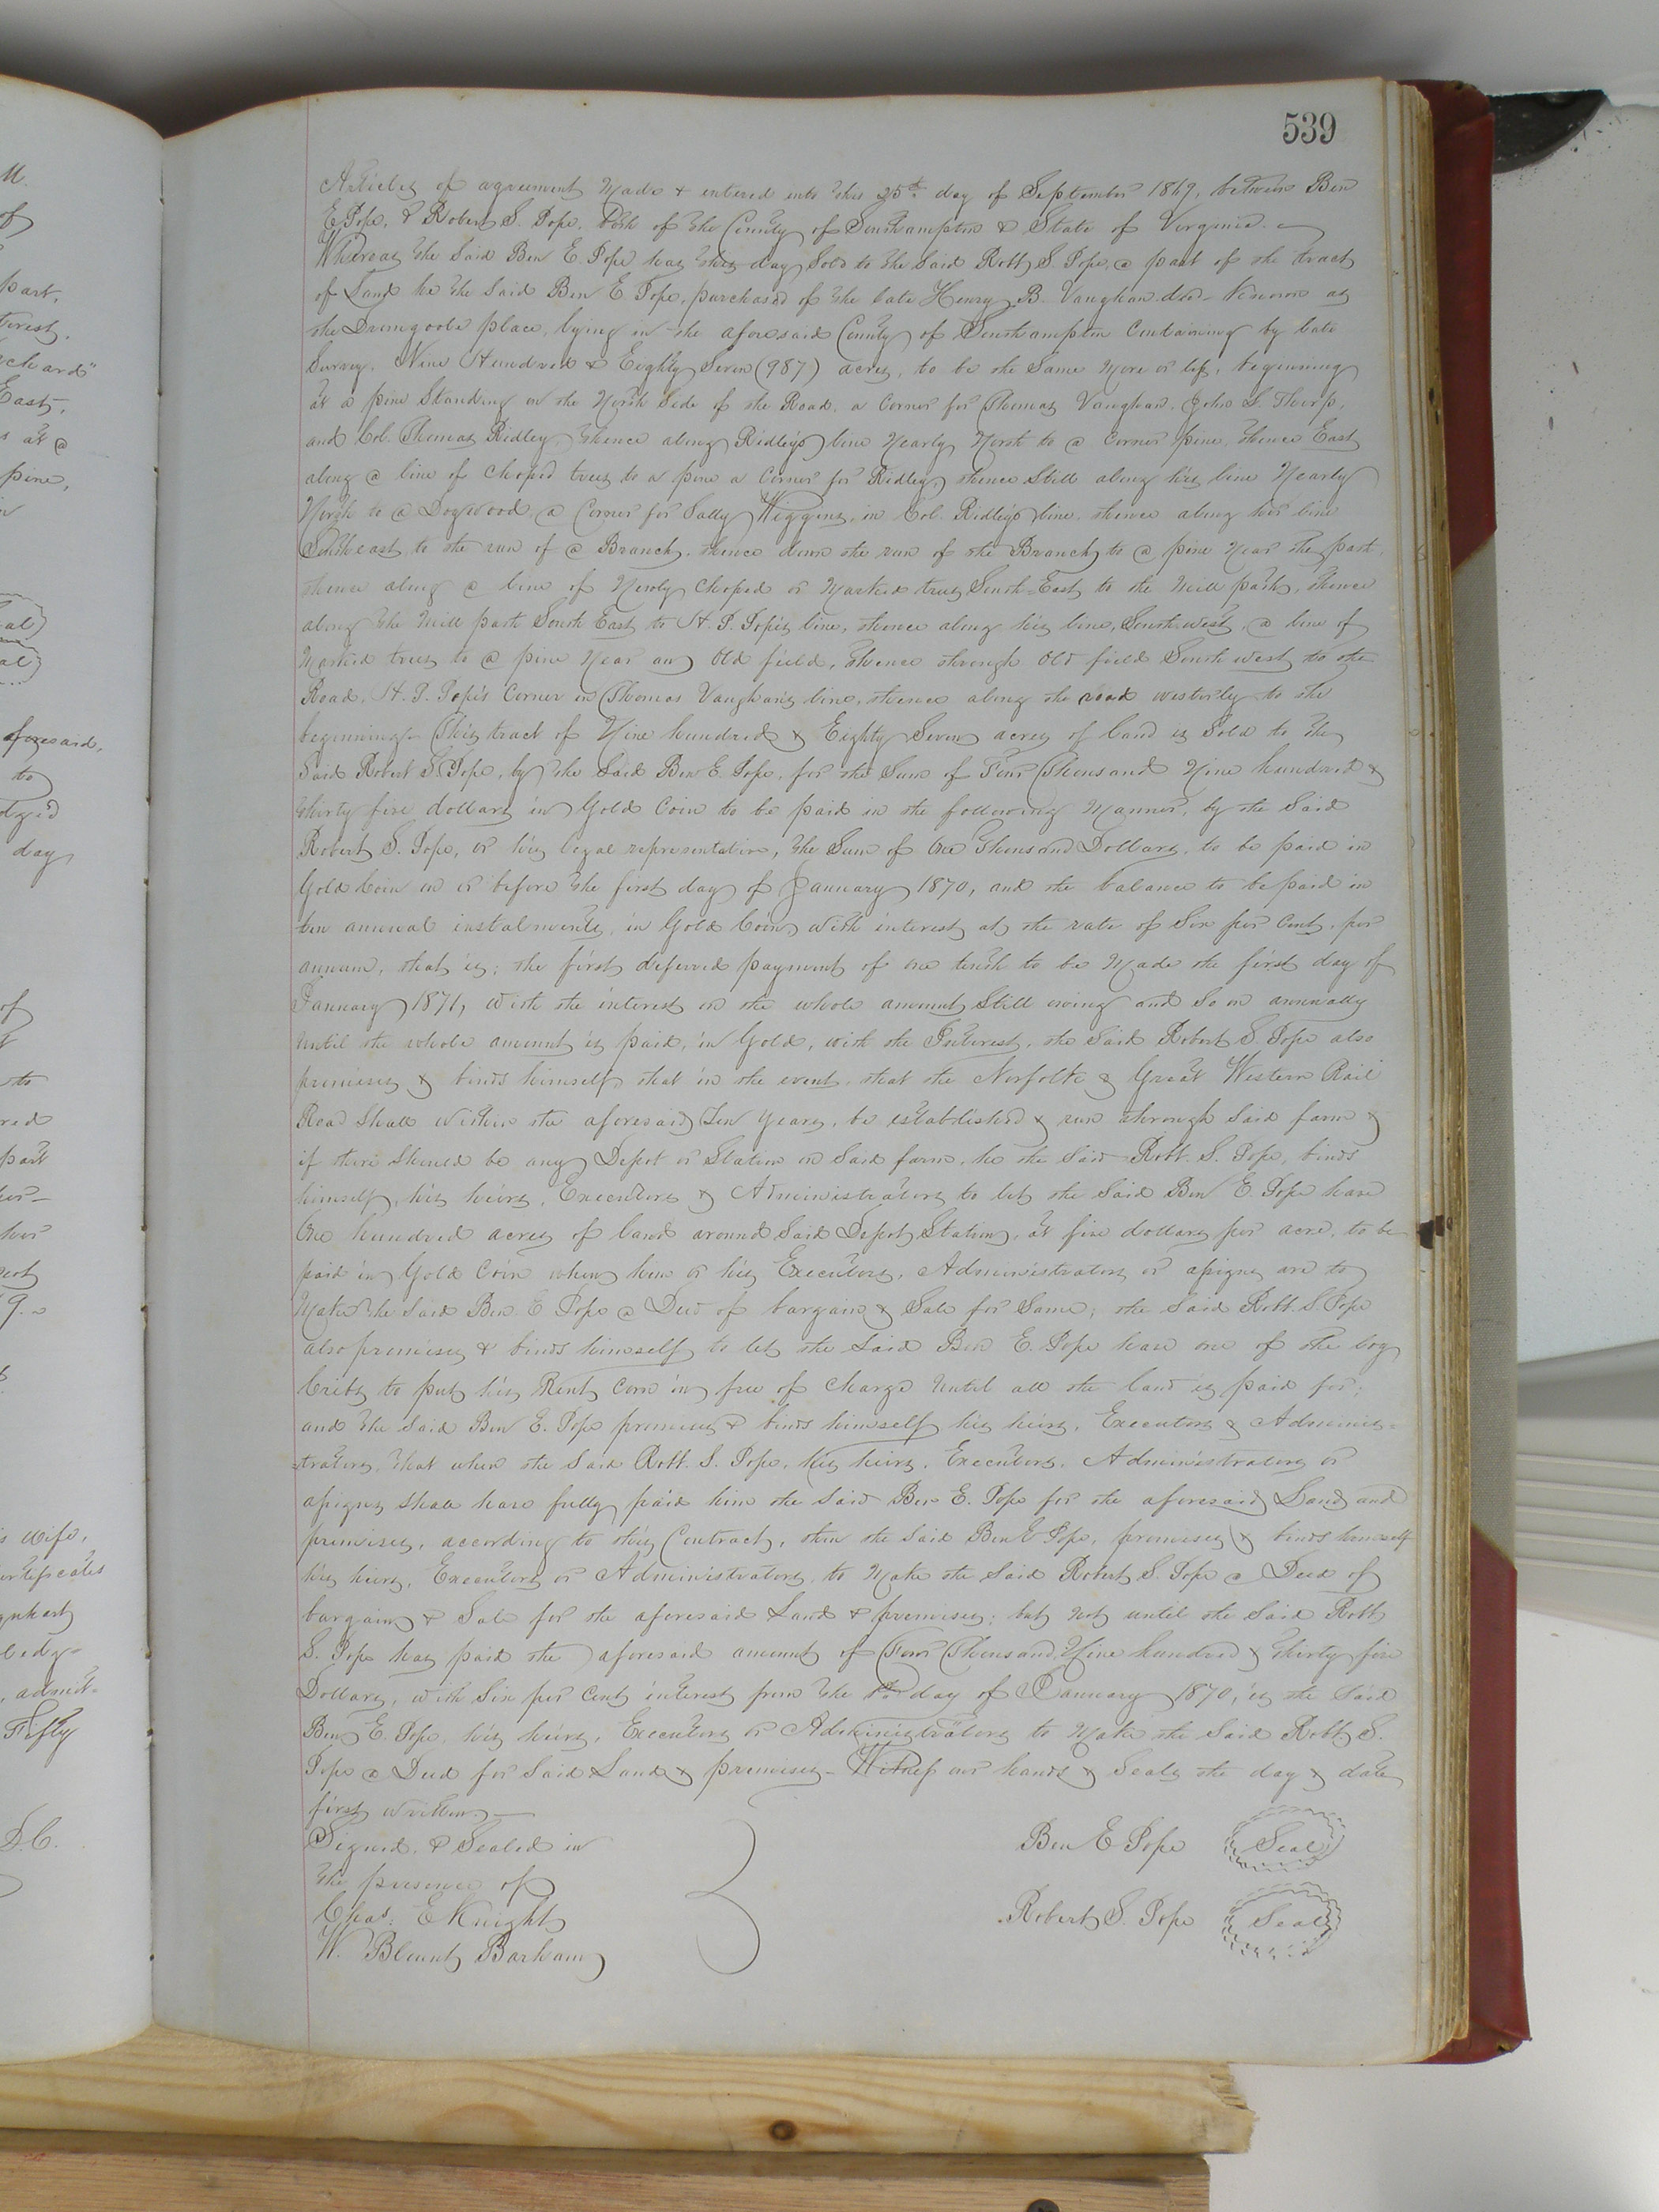 539
Articles of agreement Made & entered into this 25th day of September 1869, between Ben
E Pope, & Robert S. Pope, both of the County of Southampton & State of Virginia.
Whereas the Said Ben E. Pope has this day Sold to the Said Robt S. Pope, a part of the tract
of Land he the Said Ben E. Pope, purchased of the late Henry B. Vaughan dcd - Known as
the Drumgoole place, lying in the aforesaid County of Southampton Containing by late
Survey, Nine Hundred & Eighty Seven (987) acres, to be the Same More or less, beginning
at a pine Standing on the North Side of the Road, a Corner for Thomas Vaughan, John L. Thorp,
and Col. Thomas Ridley, thence along Ridley's line Nearly North to a Corner pine, thence East
along a line of Choped trees to a pine a Corner for Ridley, thence Still along his line Nearly
North to a Dogwood a Corner for Sally Wiggins, in Col. Ridleys line, thence along her line
Southeast to the run of a Branch, thence down the run of the Branch to a pine Near the path,
thence along a line of Newly Choped or Marked trees South-East to the Mill path, thence
along the Mill path South East to H. P. Pope's line, thence along his line, Southwest, a line of
Marked trees to a pine Near an Old field, thence through Old field South west to the
Road, H. P. Pope's Corner in Thomas Vaughan's line, thence along the road westerly to the
beginning. This tract of Nine hundred & Eighty Seven acres of land is Sold to the
Said Robert S. Pope, by the Said Ben E. Pope, for the Sum of Four Thousand Nine hundred &
thirty five dollars in Gold Coin to be paid in the following Manner, by the Said
Robert S. Pope, or his legal representative, the Sum of One Thousand Dollars, to be paid in
Gold Coin on or before the first day of January 1870, and the balance to be paid in
ten annual instalments, in Gold Coin, with interest at the rate of Six per Cent, per
annum, that is; the first deferred payment of one tenth to be Made the first day of
January 1871, with the interest on the whole amount Still owing and So on annually
Until the whole amount is paid, in Gold, with the Interest, the Said Robert S. Pope also
promises & binds himself, that in the event, that the Norfolk & Great Western Rail
Road Shall within the aforesaid Ten Years, be established & run through Said farm &
if there Should be any Depot or Station on Said farm, he the Said Robt. S. Pope, binds
himself, his heirs, Executors & Administrators to let the Said Ben E. Pope have
One hundred acres of land around Said Depot, Station, at five dollars per acre, to be
paid in Gold Coin when him or his Executors, Administrators or assigns are to
Make the Said Ben E Pope a Deed of bargain & Sale for Same; the Said Robt. S. Pope
also promises & binds himself to let the Said Ben E. Pope have one of the log
Cribs to put his Rent Corn in free of Charge Until all the land is paid for;
and the Said Ben E. Pope promises & binds himself his heirs, Executors & Adminis-
=trators, that when the Said Robt. S. Pope, his heirs, Executors, Administrators or
assigns Shall have fully paid him the Said Ben E. Pope for the aforesaid Land and
premises, according to this Contract, then the Said Ben E Pope, promises & binds himself
his heirs, Executors or Administrators, to Make the Said Robert S. Pope a Deed of
bargain & Sale for the aforesaid Land & premises; but not until the Said Robt
S. Pope has paid the aforesaid amount of Four Thousand Nine hundred & thirty five
Dollars, with Six per Cent interest from the day of January 1870, is the Said
Ben E. Pope, his heirs, Executors or Administrators to Make the Said Robt. S.
Pope a Deed for Said Land & premises - Witness our hands & Seals the day & date
first written.
Signed, & Sealed in
the presence of
Chas. E Knight
W. Blount Barham
Ben E Pope Seal
Robert S. Pope Seal